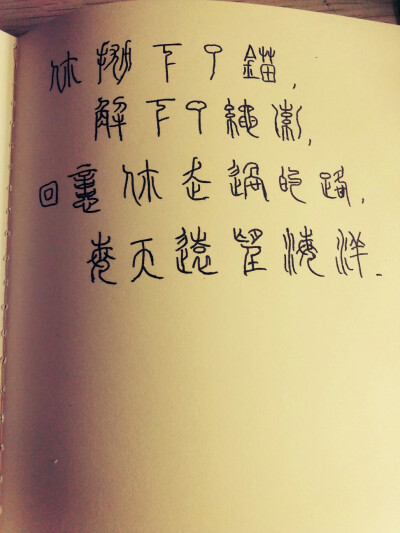 你拋下了錨，
解下了繩索，
回你走過的路，
每天遠望海洋。